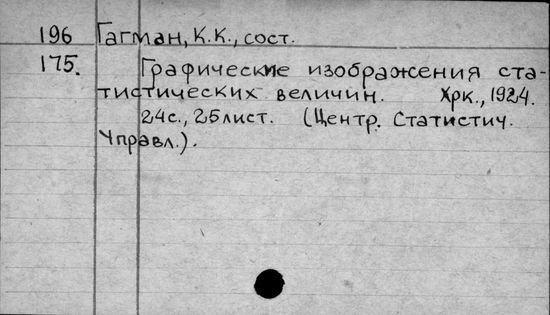 196 Гагман, К.К., сост.
175. Графические изображения ста-
тистических величин. Хрк., 1924.
24с., 25лист. (Центр. Статистич.
Управл.).